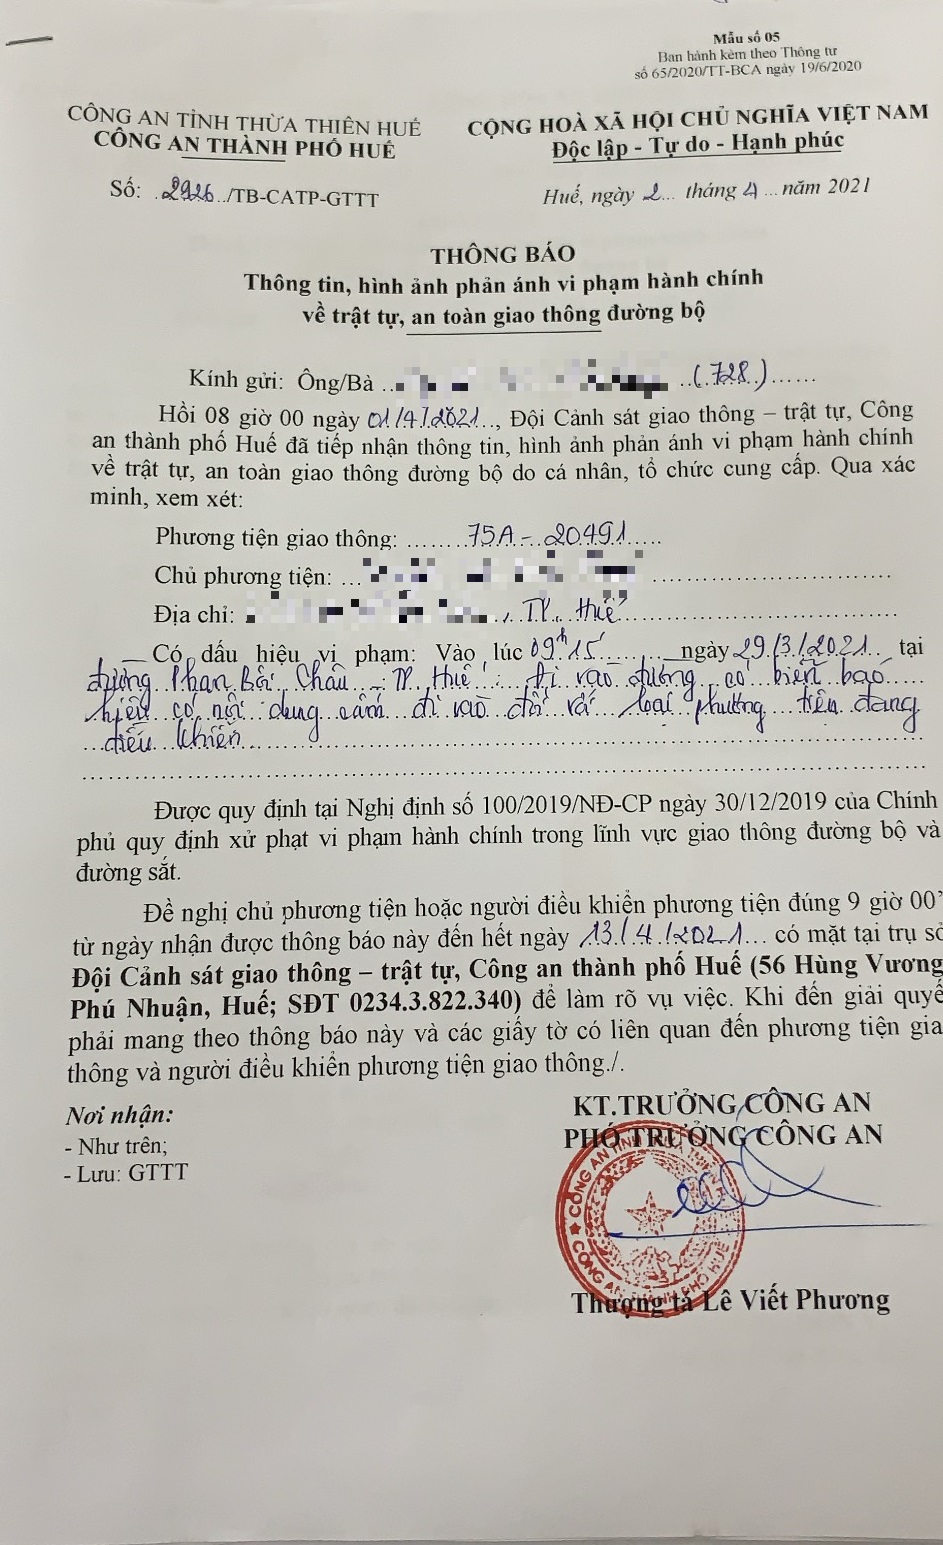 Mẫu số 05
Ban hành kèm theo Thông tư
số 65/2020/TT-BCA ngày 19/6/2020
CÔNG AN TỈNH THỪA THIÊN HUẾ
CÔNG AN THÀNH PHỐ HUẾ
CỘNG HOÀ XÃ HỘI CHỦ NGHĨA VIỆT NAM
Độc lập - Tự do - Hạnh phúc
Số: .2926../TB-CATP-GTTT
Huế, ngày 2... tháng 4 ... năm 2021
THÔNG BÁO
Thông tin, hình ảnh phản ánh vi phạm hành chính
về trật tự, an toàn giao thông đường bộ
Kính gửi: Ông/Bà .. ..(.728.)......
Hồi 08 giờ 00 ngày 01/4/2021.., Đội Cảnh sát giao thông – trật tự, Công
an thành phố Huế đã tiếp nhận thông tin, hình ảnh phản ánh vi phạm hành chính
về trật tự, an toàn giao thông đường bộ do cá nhân, tổ chức cung cấp. Qua xác
minh, xem xét:
Phương tiện giao thông: ......75A - 20491.....
Chủ phương tiện: ...
Địa chỉ: , TP. Huế
Có dấu hiệu vi phạm: Vào lúc 09h15 ngày 29/3/2021.. tại
đường Phan Bội Châu - TP Huế : Đi vào đường có biển báo
hiệu có nội dung cấm đi vào đối với loại phương tiện đang
điều khiển
Được quy định tại Nghị định số 100/2019/NĐ-CP ngày 30/12/2019 của Chính
phủ quy định xử phạt vi phạm hành chính trong lĩnh vực giao thông đường bộ và
đường sắt.
Đề nghị chủ phương tiện hoặc người điều khiển phương tiện đúng 9 giờ 00'
từ ngày nhận được thông báo này đến hết ngày 13/4/2021... có mặt tại trụ sở
Đội Cảnh sát giao thông – trật tự, Công an thành phố Huế (56 Hùng Vương
Phú Nhuận, Huế; SĐT 0234.3.822.340) để làm rõ vụ việc. Khi đến giải quyế
phải mang theo thông báo này và các giấy tờ có liên quan đến phương tiện gia
thông và người điều khiển phương tiện giao thông./.
Nơi nhận:
- Như trên;
- Lưu: GTTT
KT.TRƯỞNG CÔNG AN
PHÓ TRƯỞNG CÔNG AN
CÔNG AN THÀNH PHỐ HUẾ
Thượng tá Lê Viết Phương